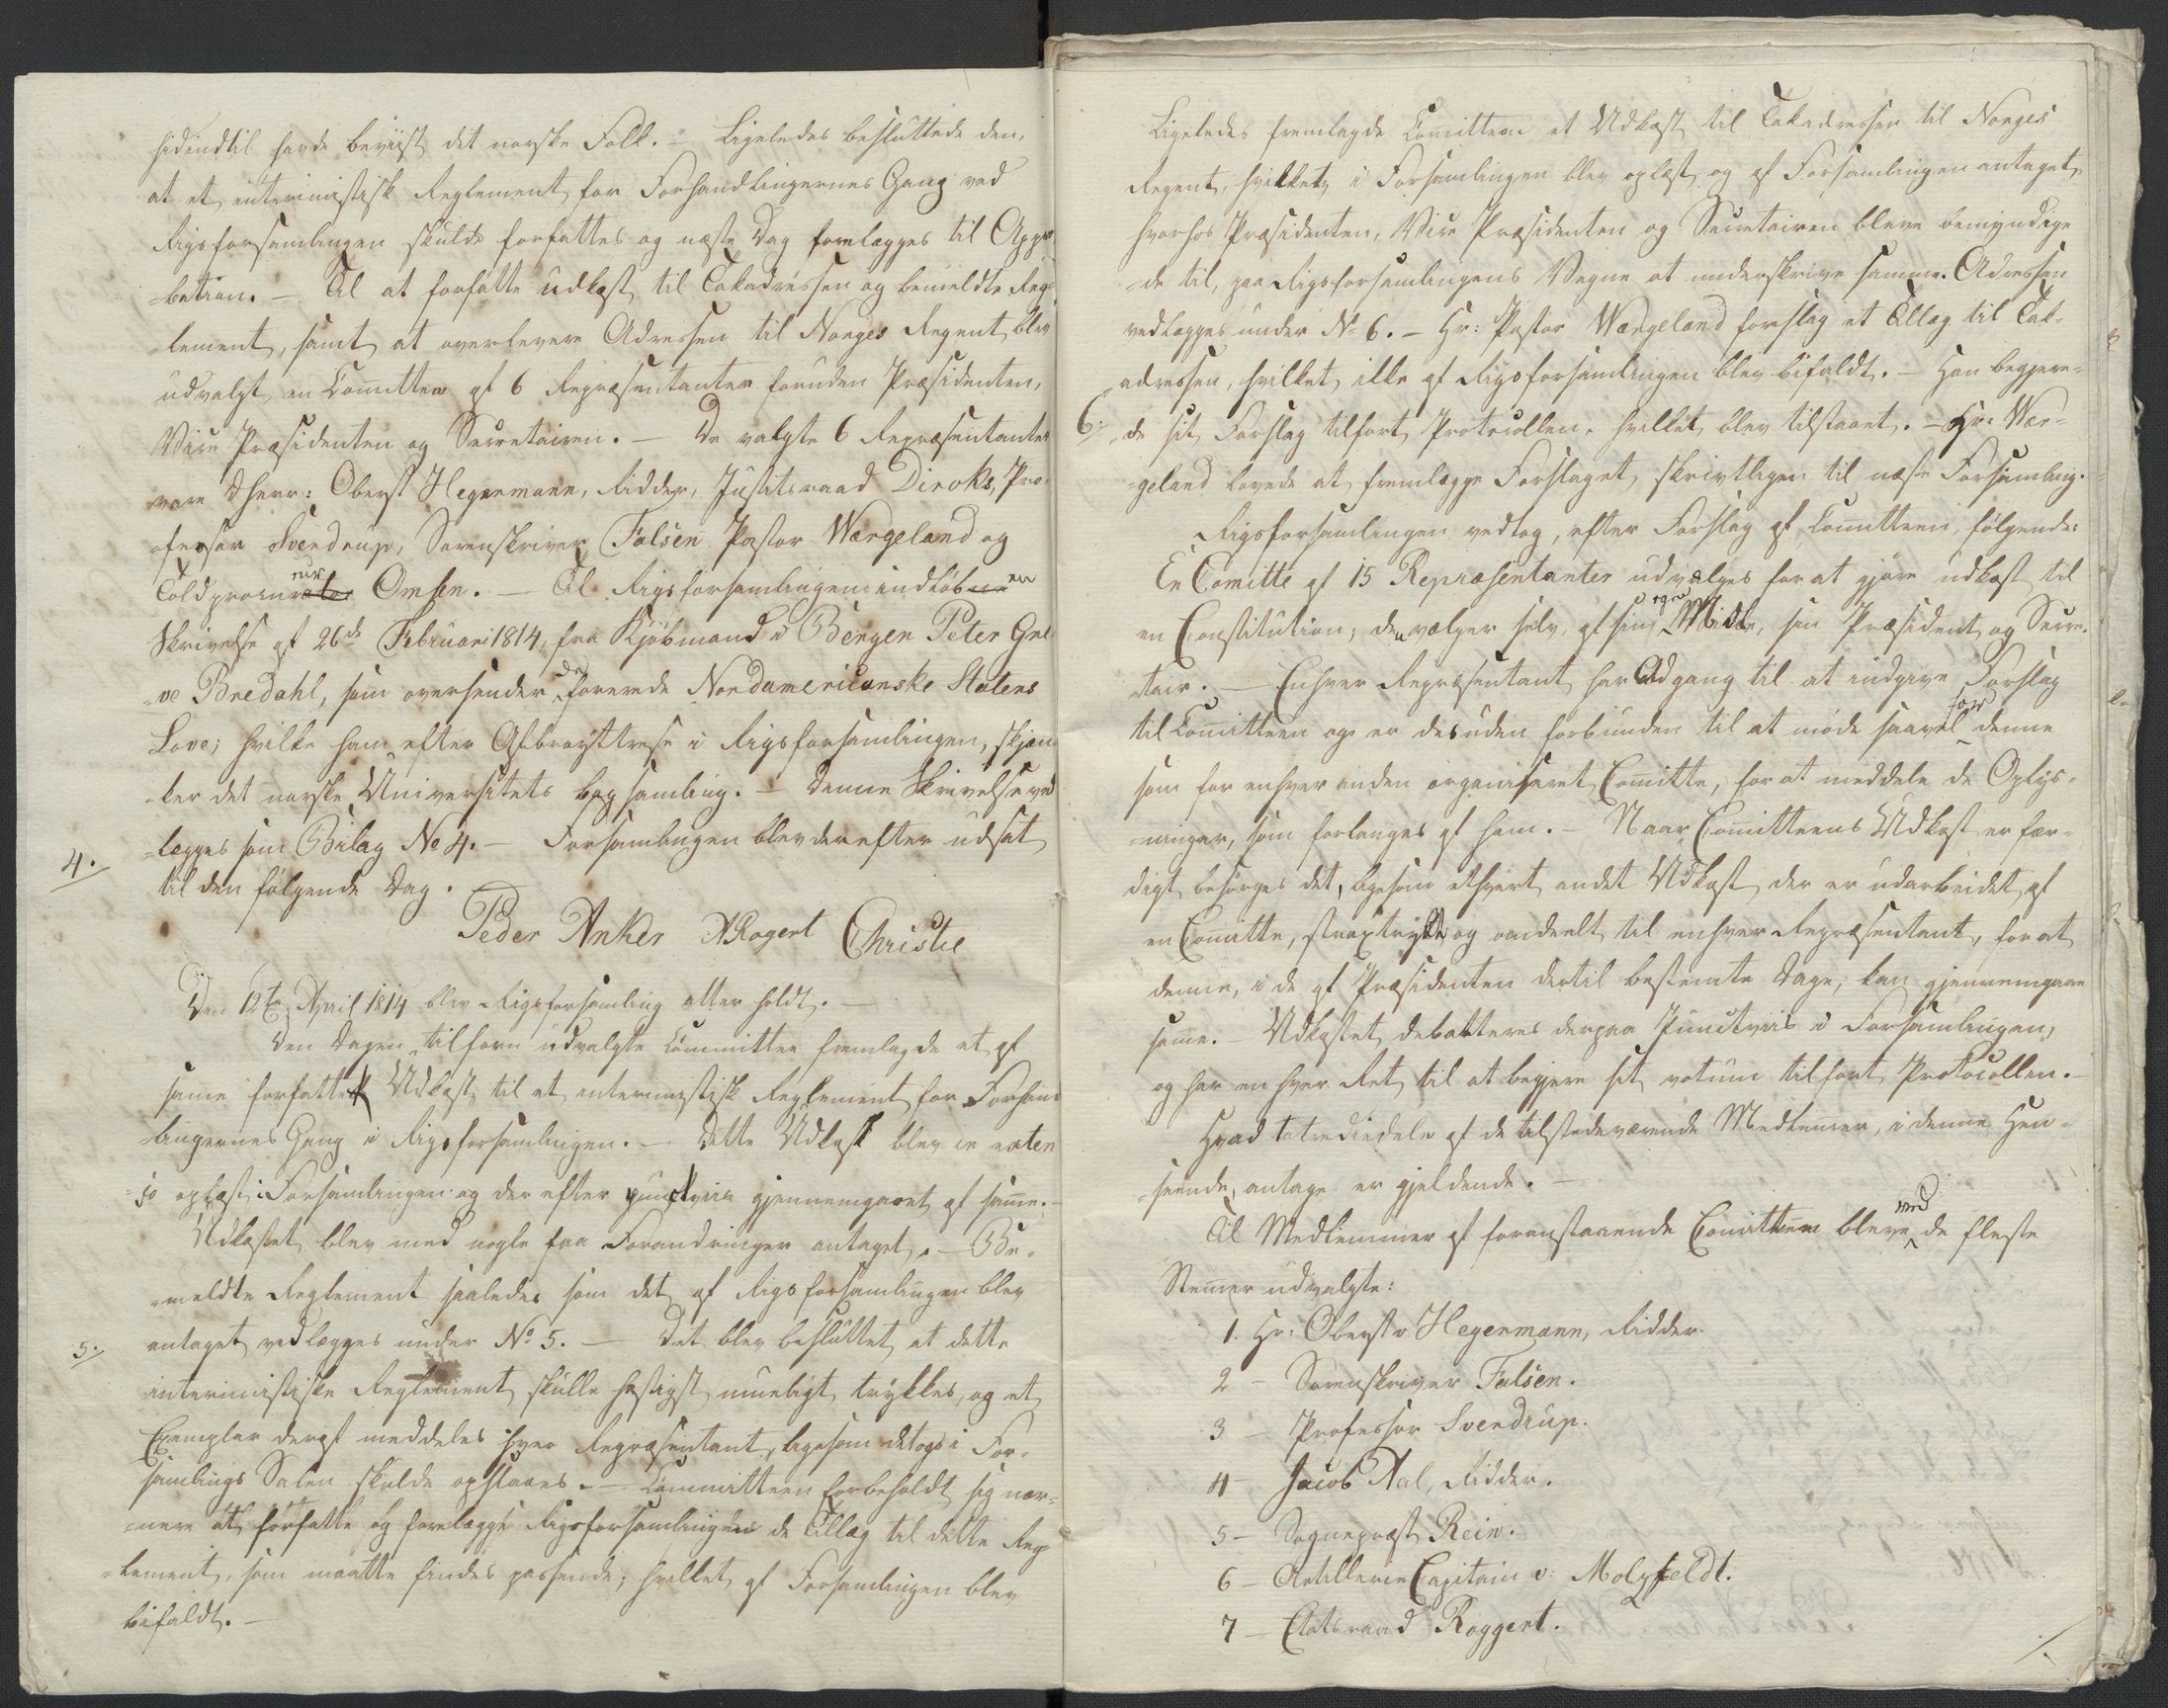 hidindtil havde beviist det norske Folk. – Ligeledes besluttede den,
at et interimistisk Reglement for Forhandlingernes Gang ved
Rigsforsamlingen skulde forfattes og næste Dag forelægges til Appro
-bation. – Til at forfatte udkast til Takadressen og bemeldte Reg-
-lement, samt at overlevere Adressen til Norges Regent blev
udvalgt en Comitteen af 6 Repræsentanter foruden Præsidenten,
Vice Præsidenten og Secretairen. – De valgte 6 Repræsentanter
vare Dherr: Oberst Hegermann, Ridder, Justitsraad Diroks, Pro-
ofessor Sverdrup, Sorenskriver Falsen Pastor Wergeland og
Toldprocureur Omsen. – Til Rigsforsamlingen indløben en
Skrivelse af 26de Februari 1814, fra Kjøbmand i Bergen Peter Gre
-ve Bredahl, som oversender de forenede Nordamericanske Staters
Love; hvilke han efter Afbenyttelse i Rigsforsamlingen, skjæn
-ker det norske Universitets bogsamling. – Denne Skrivelse ved
4. -lægges som Bilag No 4. – Forsamlingen blev derefter udsat
til den følgende Dag.
Peder Anker ARogert Christie
Den 12te April 1814 blev Rigsforsamling atter holdt. –
Den Dagen tilforn udvalgte Committee fremlagde et af
samme forfattet Udkast til et interimistisk Reglement for Forhand
-lingernes Gang i Rigsforsamlingen. – Dette Udkast blev in exten
-so oplæst i Forsamlingen og derefter punctviis gjennemgaaet af samme. –
Udkastet blev med nogle faa Forandringer antaget. – Be-
-meldte Reglement saaledes som det af Rigsforsamlingen blev
5. antaget vedlægges under No 5. – Det blev besluttet at dette
interimistiske Reglement skulle hastigst mueligt trykkes, og et
Exemplar deraf meddeles hver Repræsentant, ligesom det ogs i For-
samlings Salen skulde opslaaes. – Committeen forbeholdt sig nær-
-mere at forfatte og forelægge Rigsforsamlingen de Tillæg til dette Reg
-lement, som maatte findes passende; hvilket af Forsamlingen blev
bifaldt. –
Ligeledes fremlagde Comitteen et Udkast til Takadressen til Norges
Regent, hvilket i Forsamlingen blev oplæst og af Forsamlingen antaget,
hvorhos Præsidenten, Vice Præsidenten og Secretairen bleve bemyndige
-de til, paa Rigsforsamlingens Vegne at underskrive samme. Adressen
vedlægges under No 6. – Hr: Pastor Wergeland forslog et Tillæg til Tak-
adressen, hvilket ikke af Rigsforsamlingen blev bifaldt. – Han begjere-
6. -de sit Forslag tilført Protocollen, hvilket blev tilstaaet. – Hr: Wer-
-geland lovede at fremlægge Forslaget skrivtligen til næste Forsamling.
Rigsforsamlingen vedtog, efter Forslag af Comitteen, følgende:
En Comitte af 15 Repræsentanter udvælges for at gjøre udkast til
en Constitution; den vælger selv, af sin egen Midte, sin Præsident og Secre-
tair. – Enhver Repræsentant har Adgang til at indgive Forslag
til Comitteen og er desuden forbunden til at møde saavel for denne
som for enhver anden organiseret Comitte, for at meddele de Oplys-
-ninger, som forlanges af ham. – Naar Comitteens Udkast er fær-
digt besørges det, ligesom ethvert andet Udkast der er udarbeidet af
en Comitte, strax trykt og omdeelt til enhver Repræsentant, for at
denne, i de af Præsidenten dertil bestemte Dage, kan gjennemgaae
samme. – Udkastet debatteres derpaa Punctviis i Forsamlingen,
og har enhver Ret til at begjere sit votum tilført Protocollen. –
Hvad totrediedele af de tilstedeværende Medlemmer, i denne Hen-
-seende, antage er gjeldende. –
Til Medlemmer af foranstaaende Comitteen bleve med de fleste
Stemmer udvalgte:
1. Hr: Oberst v Hegermann, Ridder.
2 – Sorenskriver Falsen.
3 – Professor Sverdrup.
4 – Jacob Aal, Ridder.
5 – Sognepræst Rein.
6 – Artillerie Capitain v: Motzfeldt.
7 – Etatsraad Roggert.